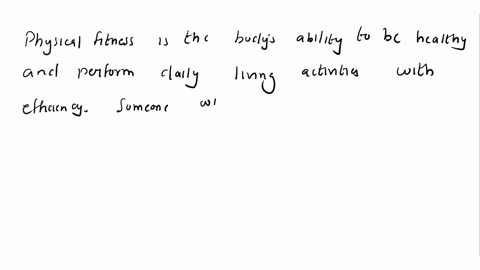 Physical fitness is the body's ability to be healthy
and perform daily living activities with
efficiency. Someone wi